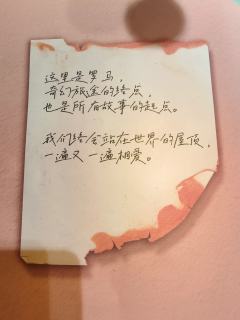 这里是罗马，
奇幻旅途的终点，
也是所有故事的起点。
我们终会站在世界的屋顶，
一遍又一遍相爱。